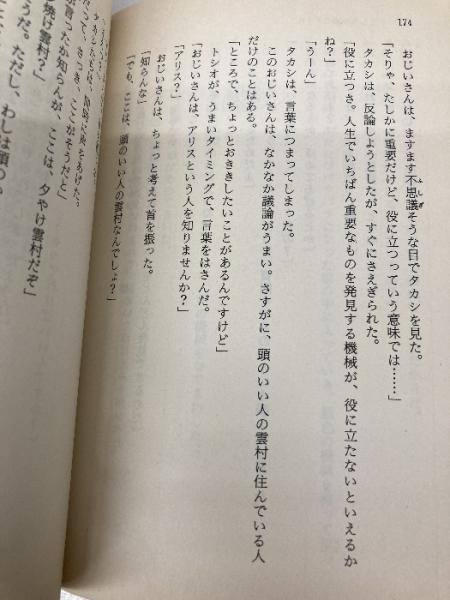 174
おじいさんは、ますます不思議そうな目でタカシを見た。
「そりゃ、たしかに重要だけど、役に立つっていう意味では……」
タカシは、反論しようとしたが、すぐにさえぎられた。
「役に立つさ。人生でいちばん重要なものを発見する機械が、役に立たないといえるか
ね?」
「うーん」
タカシは、言葉につまってしまった。
このおじいさんは、なかなか議論がうまい。さすがに、頭のいい人の雲村に住んでいる人
だけのことはある。
「ところで、ちょっとおききしたいことがあるんですけど」
トシオが、うまいタイミングで、言葉をはさんだ。
「おじいさんは、アリスという人を知りませんか?」
「アリス?」
おじいさんは、ちょっと考えて首を振った。
「知らんな」
「でも、ここは、頭のいい人の雲村なんでしょ?」
だって、さっき、ここがそうだと」
が言ったか知らんが、ここは、夕やけ雲村だぞ」
焼け雲村?」
うだ。ただし、わしは頭の